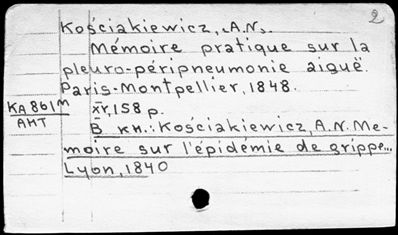 2
Kościakiewicz, A.N.
Mémoire pratique sur la
pleuro-péripneumonie aiguë.
Paris-Montpellier, 1848.
KA 861M
АКТ
XV, 158 p.
В кн.: Kościakiewicz, A.N. Me-
moire sur l'épidémie de grippe...
Lyon, 1840